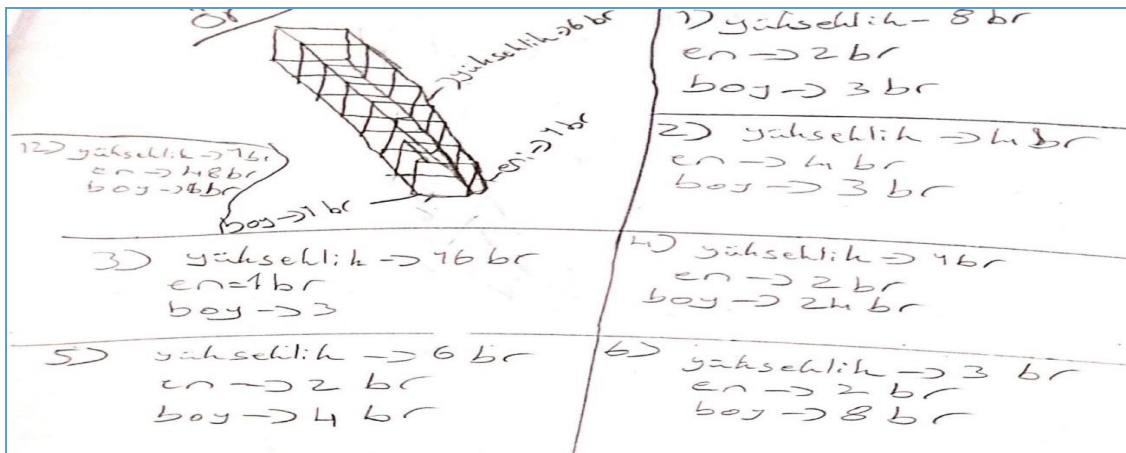 Ör
yüksehlik→6 br
eni→1 br
boy→1 br
12) yüksehlik→1br
en→48br
boy→1br
1) yüksehlik- 8 br
en→2br
boy→3br
2) yüksehlik→4 br
en→4 br
boy→3 br
3) yüksehlik→16 br
en=1br
boy→3
4) yüksehlik→1br
en→2br
boy→24 br
5) yüksehlik→6 br
en→2 br
boy→4 br
6) yüksehlik→3 br
en→2 br
boy→8 br